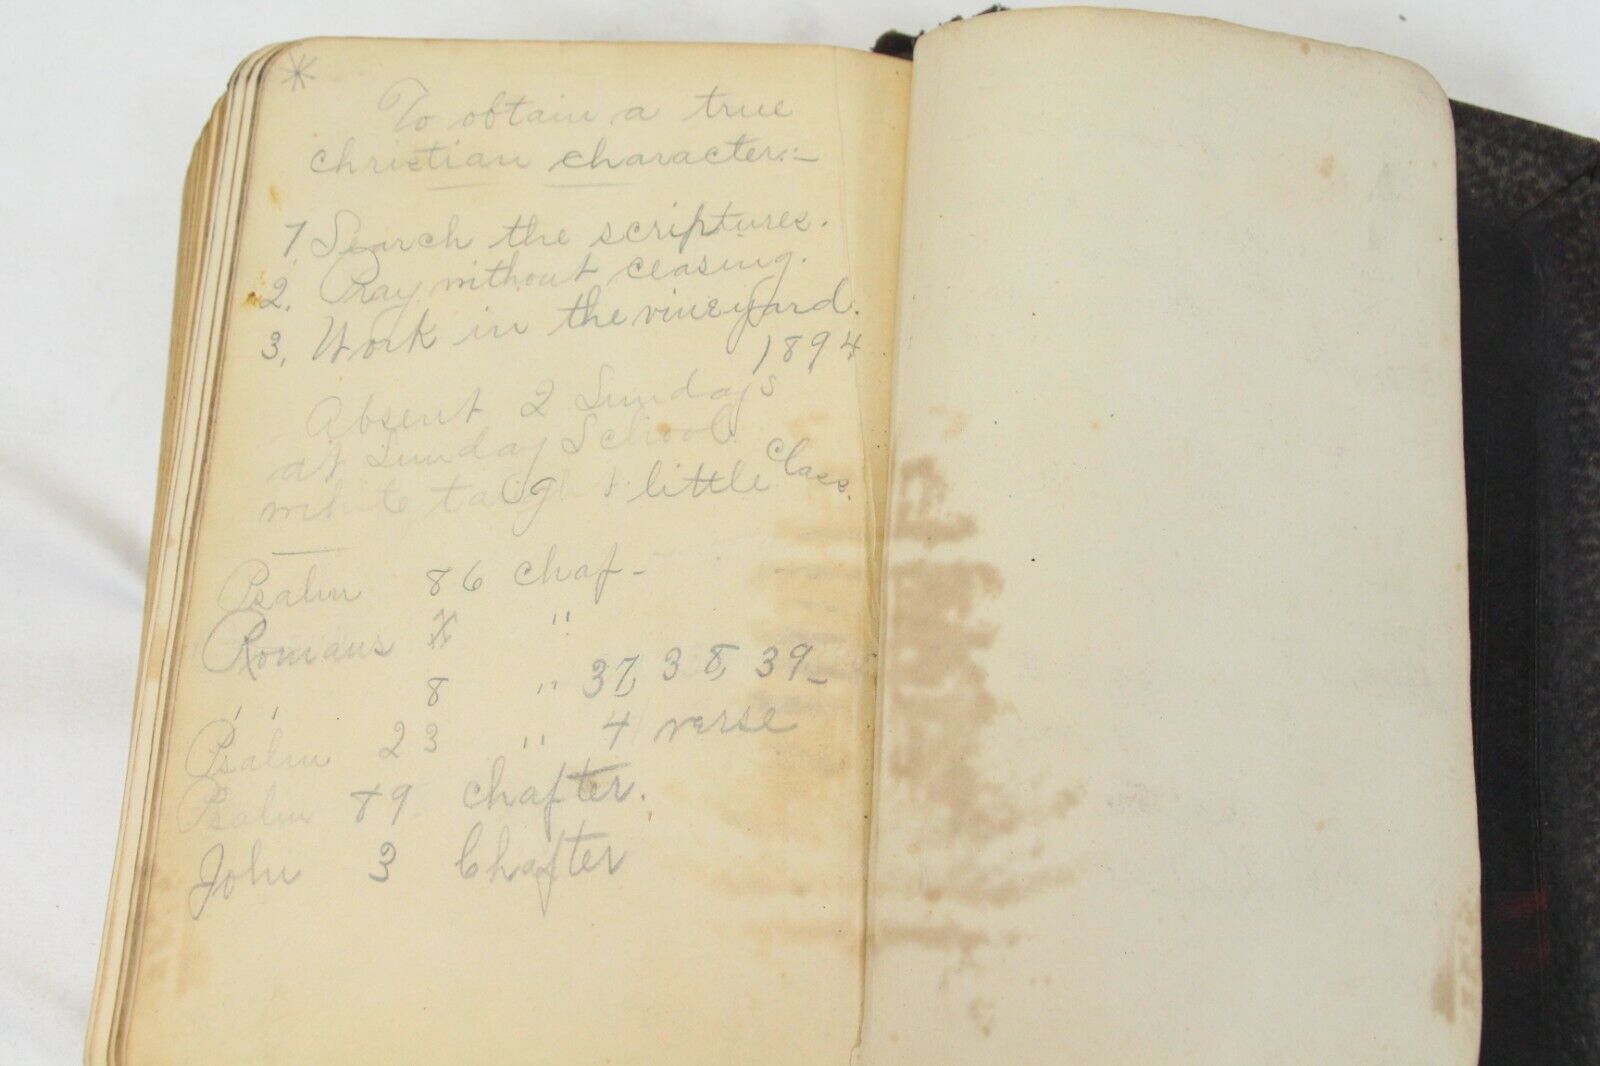 To obtain a true
christian character:-
1. Search the scriptures.
2. Pray without ceasing.
3. Work in the vineyard.
1894
Absent 2 Sundays
at Sunday School
while taught little class.
Psalm 86 chap-
Romans X "
" 8 " 37, 38, 39-
Psalm 23 " 4 verse
Psalm 89 chapter.
John 3 Chapter